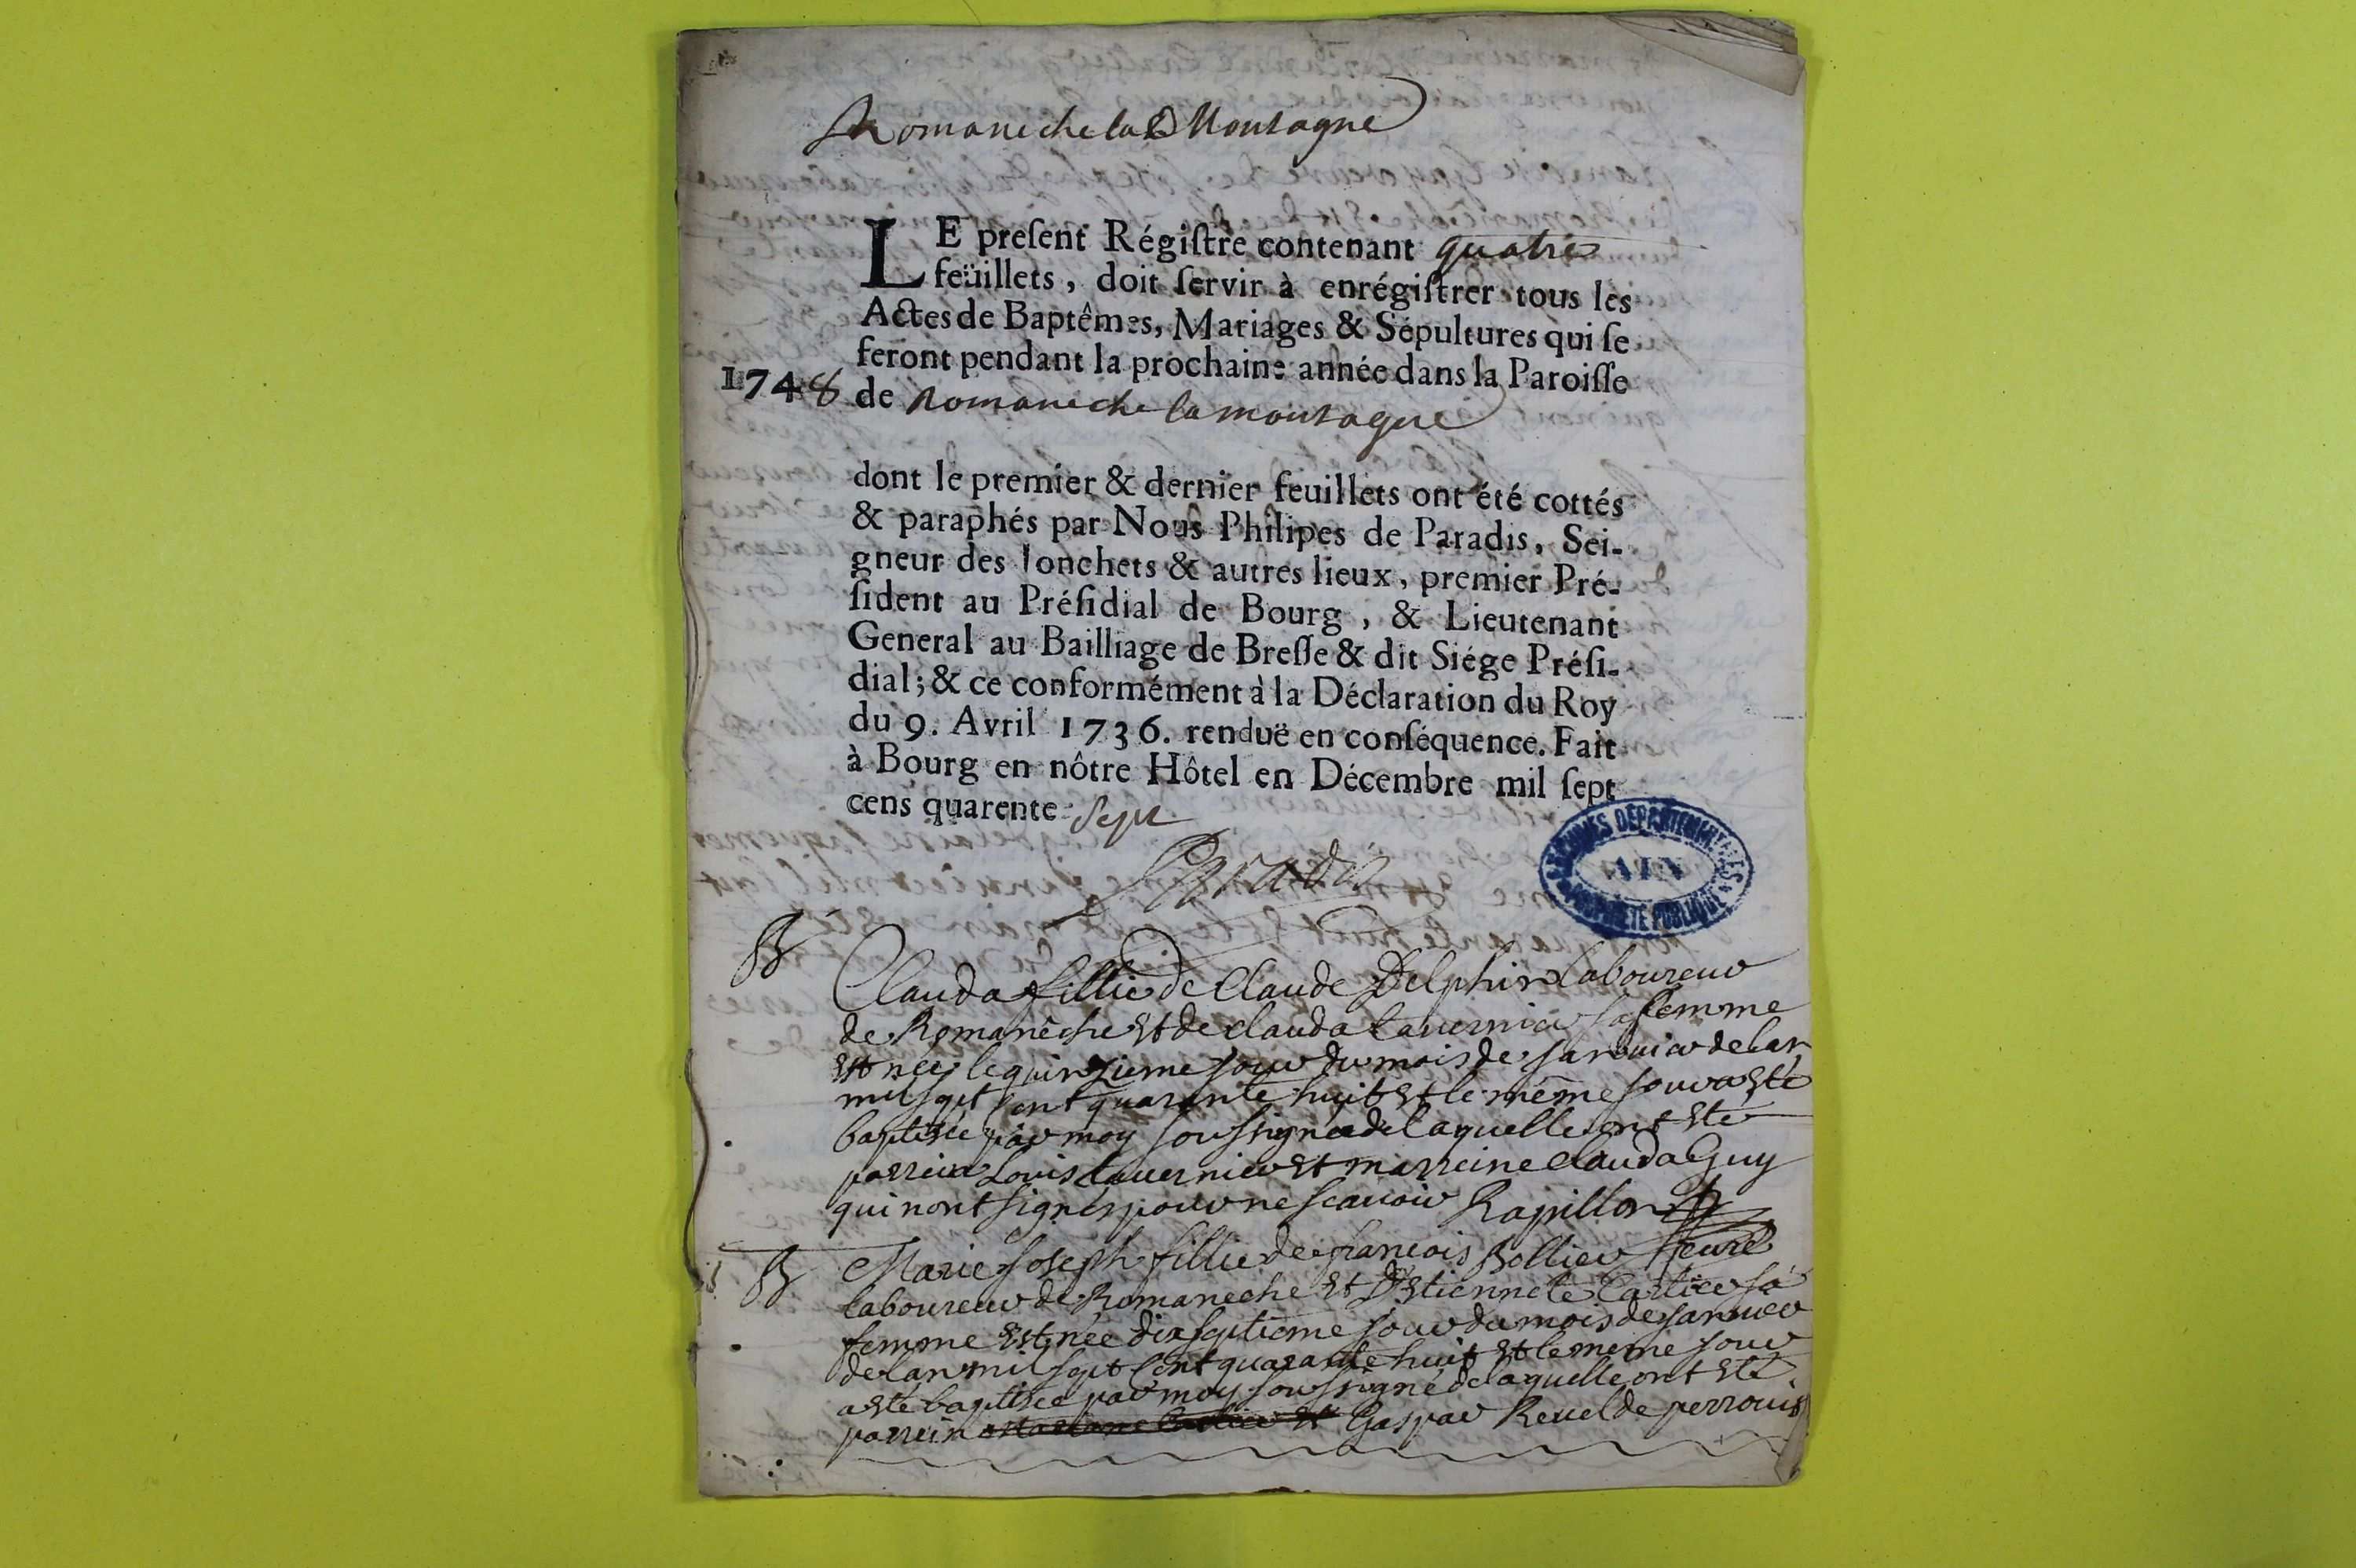 Romaneche la Montagne
LE preſent Régiſtre contenant quatre
feüillets, doit ſervir à enrégiſtrer tous les
Actes de Baptêmes, Mariages & Sépultures qui ſe
feront pendant la prochaine année dans la Paroiſſe
1748 de Romaneche la montagne
dont le premier & dernier feuillets ont été cottés
& paraphés par Nous Philipes de Paradis, Sei-
gneur des Jonchets & autres lieux, premier Pré-
ſident au Préſidial de Bourg, & Lieutenant
General au Bailliage de Breſſe & dit Siége Préſi-
dial; & ce conformément à la Déclaration du Roy
du 9. Avril 1736. renduë en conſéquence. Fait
à Bourg en nôtre Hôtel en Décembre mil ſept
cens quarente sept
Paradis
ARCHIVES DÉPARTEMENTALES
AIN
PROPRIÉTÉ PUBLIQUE
B
Clauda fillie de Claude Delphin laboureur
de Romanêche et de clauda tavernier sa femme
est née le quinzieme jour du mois de janvier de lan
mil sept cent quarante huit et le même jour a esté
baptisée par moy soussigné de laquelle ont esté
parrein Louis tavernier et marreine clauda Guy
qui nont signés pour ne scavoir Rapillon
B Marie Joseph fillie de francois Bollier
laboureur de Romaneche et Destiennete Carlier sa
femme est née dixseptieme jour du mois de janvier
de lan mil sept cent quarante huit et le meme jour
a esté baptisée par moy soussigné de laquelle ont esté
parrein Gaspar Revel de perrouis